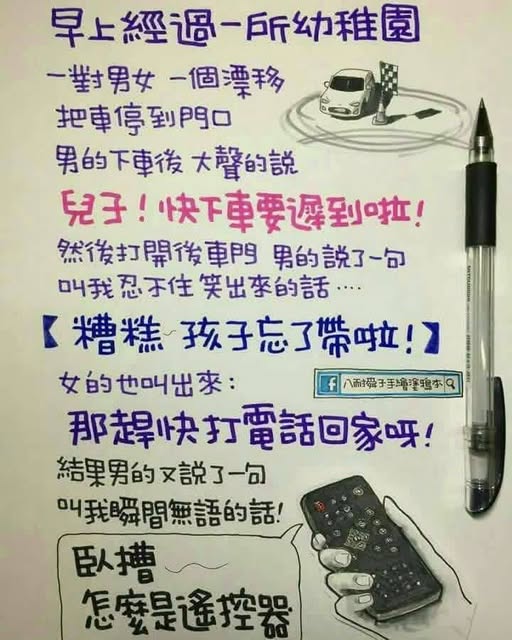 早上經過一所幼稚園
一對男女 一個漂移
把車停到門口
男的下車後 大聲的說
兒子！快下車要遲到啦！
然後打開後車門 男的說了一句
叫我忍不住笑出來的話‥‥
【糟糕~孩子忘了帶啦！】
女的也叫出來：
f 八耐舜子手繪塗鴉本
那趕快打電話回家呀！
結果男的又說了一句
叫我瞬間無語的話！
臥槽~
怎麼是遙控器